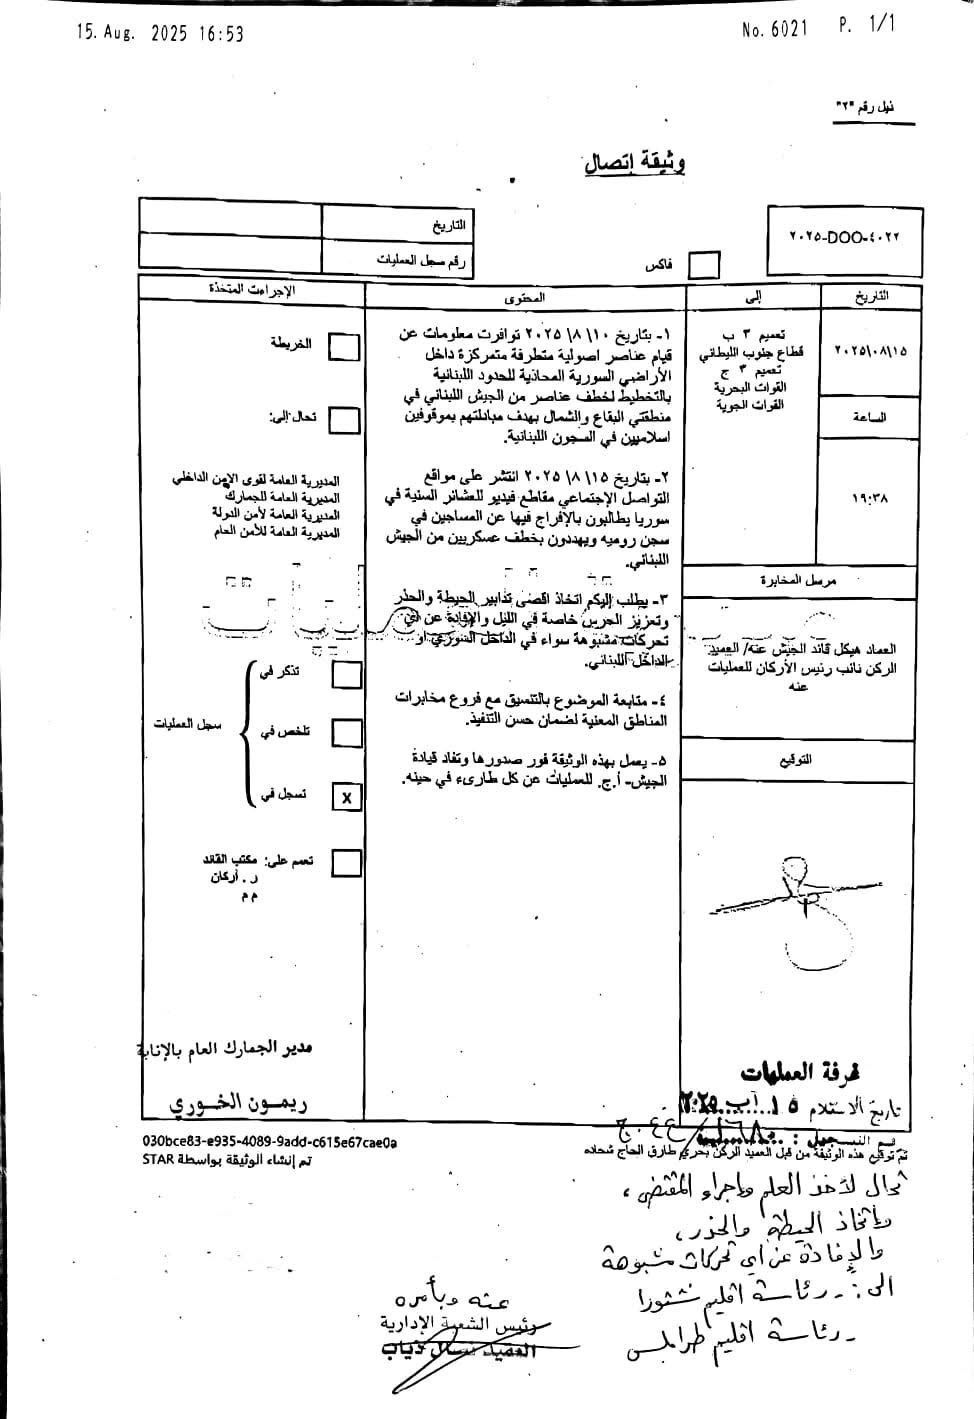 15. Aug. 2025 16:53
No. 6021 P. 1/1
ذيل رقم "٢"
وثيقة إتصال
٢٠٢٥-DOO-٤٠٢٢
فاكس
التاريخ
رقم سجل العمليات
التاريخ
إلى
المحتوى
الإجراءت المتخذة
٢٠٢٥\٠٨\١٥
الساعة
١٩:٣٨
تعميم ٣ ب
قطاع جنوب الليطاني
تعميم ٣ ج
القوات البحرية
القوات الجوية
مرسل المخابرة
العماد هيكل قائد الجيش عنه/ العميد
الركن نائب رئيس الأركان للعمليات
عنه
التوقيع
١- بتاريخ ١٠\ ٨\ ٢٠٢٥ توافرت معلومات عن
قيام عناصر اصولية متطرفة متمركزة داخل
الأراضي السورية المحاذية للحدود اللبنانية
بالتخطيط لخطف عناصر من الجيش اللبناني في
منطقتي البقاع والشمال بهدف مبادلتهم بموقوفين
اسلاميين في السجون اللبنانية.
٢- بتاريخ ١٥\ ٨\ ٢٠٢٥ انتشر على مواقع
التواصل الإجتماعي مقاطع فيديو للعشائر السنية في
سوريا يطالبون بالإفراج فيها عن المساجين في
سجن روميه ويهددون بخطف عسكريين من الجيش
اللبناني.
٣- يطلب إليكم اتخاذ اقصى تدابير الحيطة والحذر
وتعزيز الحرس خاصة في الليل والإفادة عن اي
تحركات مشبوهة سواء في الداخل السوري او
الداخل اللبناني.
٤- متابعة الموضوع بالتنسيق مع فروع مخابرات
المناطق المعنية لضمان حسن التنفيذ.
٥- يعمل بهذه الوثيقة فور صدورها وتفاد قيادة
الجيش- أ.ج. للعمليات عن كل طارىء في حينه.
الخريطة
تحال إلى:
المديرية العامة لقوى الامن الداخلي
المديرية العامة للجمارك
المديرية العامة لأمن الدولة
المديرية العامة للأمن العام
تذكر في
تلخص في
سجل العمليات
تسجل في
X
تعمم على: مكتب القائد
ر. أركان
م م
مدير الجمارك العام بالإنابة
ريمون الخوري
غرفة العمليات
تاريخ الاستلام ١٥ آب ٢٠٢٥
رقم التسجيل :
تم توقيع هذه الوثيقة من قبل العميد الركن بحري طارق الحاج شحاده
030bce83-e935-4089-9add-c615e67cae0a
تم إنشاء الوثيقة بواسطة STAR
تحال لأخذ العلم واجراء المقتضى،
واتخاذ الحيطة والحذر،
والإفادة عن أي تحركات مشبوهة
الى: - رئاسة اقليم شتورا
- رئاسة اقليم طرابلس
عنه وبأمره
رئيس الشعبة الإدارية
العقيد نسال ذياب